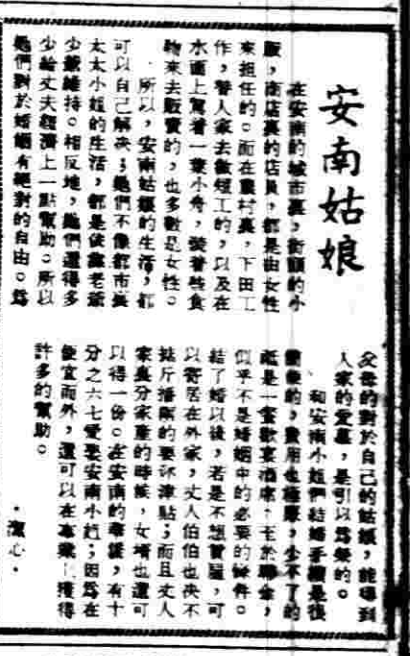 安南姑娘
在安南的城市裏，街頭的小
販，商店裏的店員，都是由女性
來担任的。而在農村裏，下田工
作，替人家去做短工的，以及在
水面上駕着一葉小舟，裝着些食
物來去販賣的，也多數是女性。
所以，安南姑娘的生活，都
可以自己解决；她們不像都市裏
太太小姐的生活，都是依靠老爺
少爺維持。相反地，她們還得多
少給丈夫經濟上一點幫助。所以
她們對於婚姻有絕對的自由。爲
父母的對於自己的姑娘，能得到
人家的愛慕，是引以爲榮的。
和安南小姐們結婚手續是很
簡便的，費用也極廉，少不了的
祗是一餐歡宴酒席，至於聘金，
似乎不是婚姻中的必要的條件。
結了婚以後，若是不想賃屋，可
以寄居在外家，丈人伯伯也决不
掂斤播兩的要你津貼；而且丈人
家裏分家產的時候，女壻也還可
以得一份。在安南的華僑，有十
分之六七愛娶安南小姐；因爲在
便宜而外，還可以在事業上獲得
許多的幫助。
・潔心・